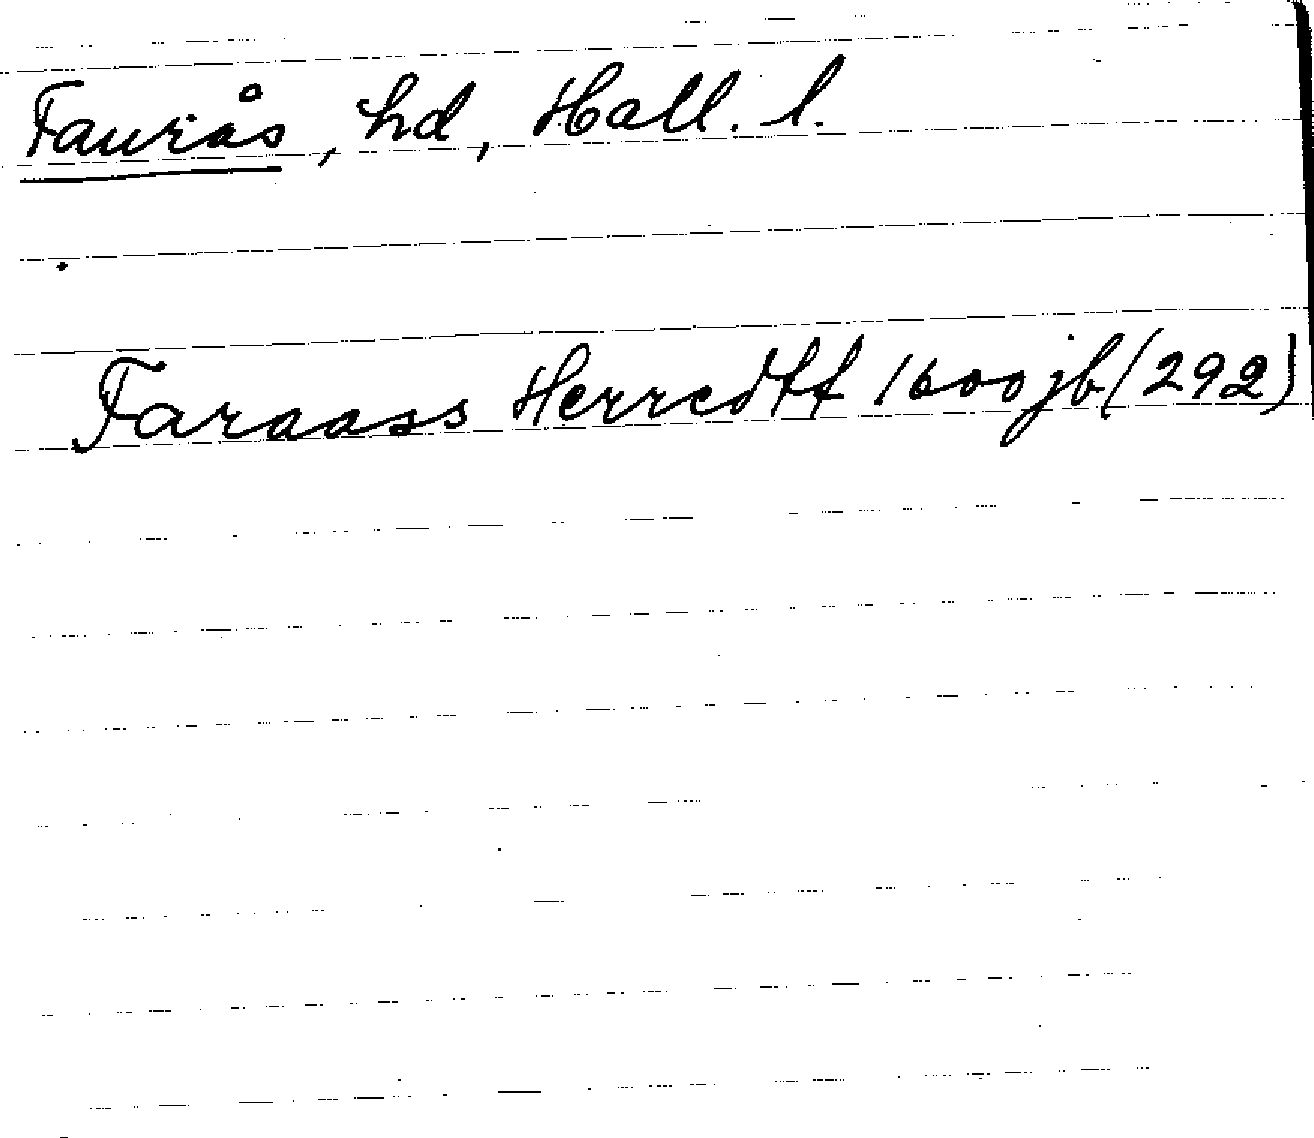 Faurås, hd, Hall. l.
Faraass Herredtt 1600 jb (292)